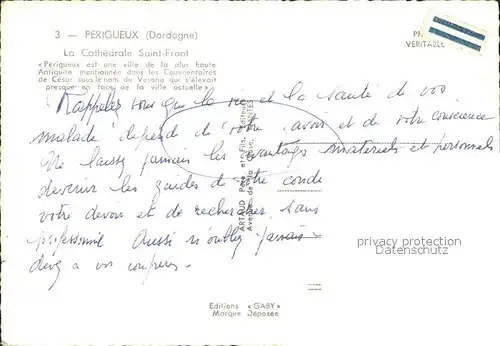 3 — PÉRIGUEUX (Dordogne)
La Cathédrale Saint-Front
« Périgueux est une ville de la plus haute
Antiquité mentionnée dans les Commentaires
de César sous le nom de Vesona qui s'élevait
presque en face de la ville actuelle »
VERITABLE
Rappelez vous que la vie et la santé de vos
malades dépend de votre savoir et de votre conscience
Ne laissez jamais les avantages matériels et personnels
devenir les guides de votre
votre devoir et de rechercher sans
professionnel Aussi n'oubliez jamais
a vos confrères.
ARTAUD Père et Fils, Editeurs
NANTES
privacy protection
Datenschutz
Editions « GABY »
Marque Déposée